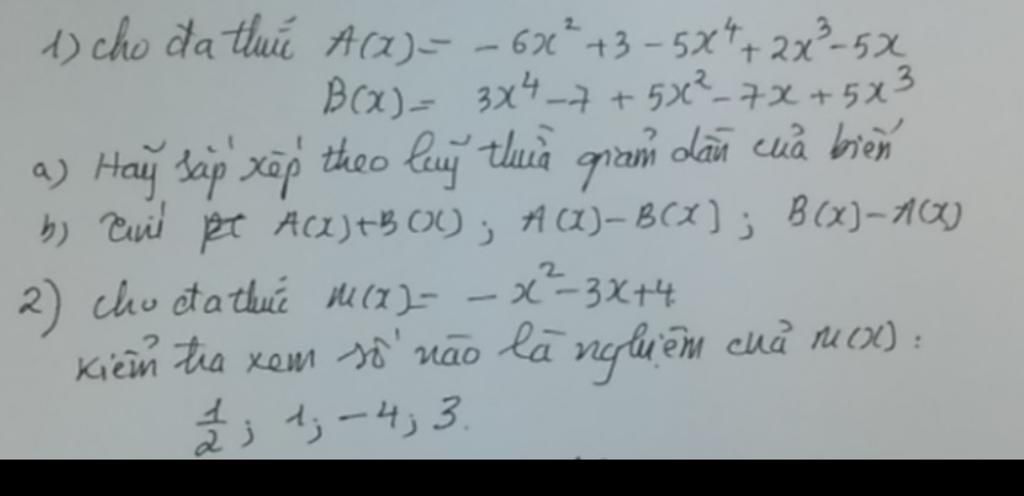 1) cho đa thức A(x) = - 6x² + 3 - 5x⁴ + 2x³ - 5x
B(x) = 3x⁴ - 7 + 5x² - 7x + 5x³
a) Hãy sắp xếp theo luỹ thừa giảm dần của biến
b) Tính A(x)+B(x) ; A(x)-B(x) ; B(x)-A(x)
2) cho đa thức M(x) = - x² - 3x + 4
Kiểm tra xem số nào là nghiệm của M(x) :
1/2 ; 1 ; -4 ; 3.